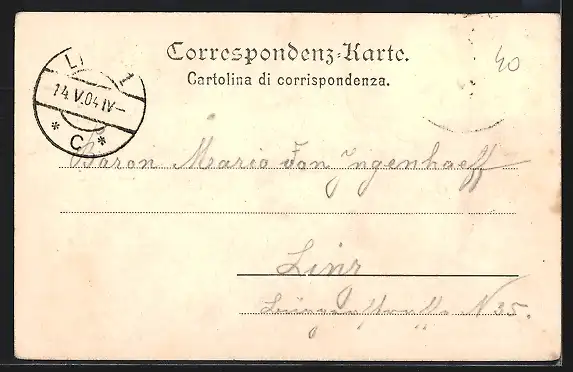 Correspondenz-Karte.
Cartolina di corrispondenza.
40
LI 1
14.V.04 IV—
* C *
Baron Mario von Ingenhaeff
Linz
N 35.